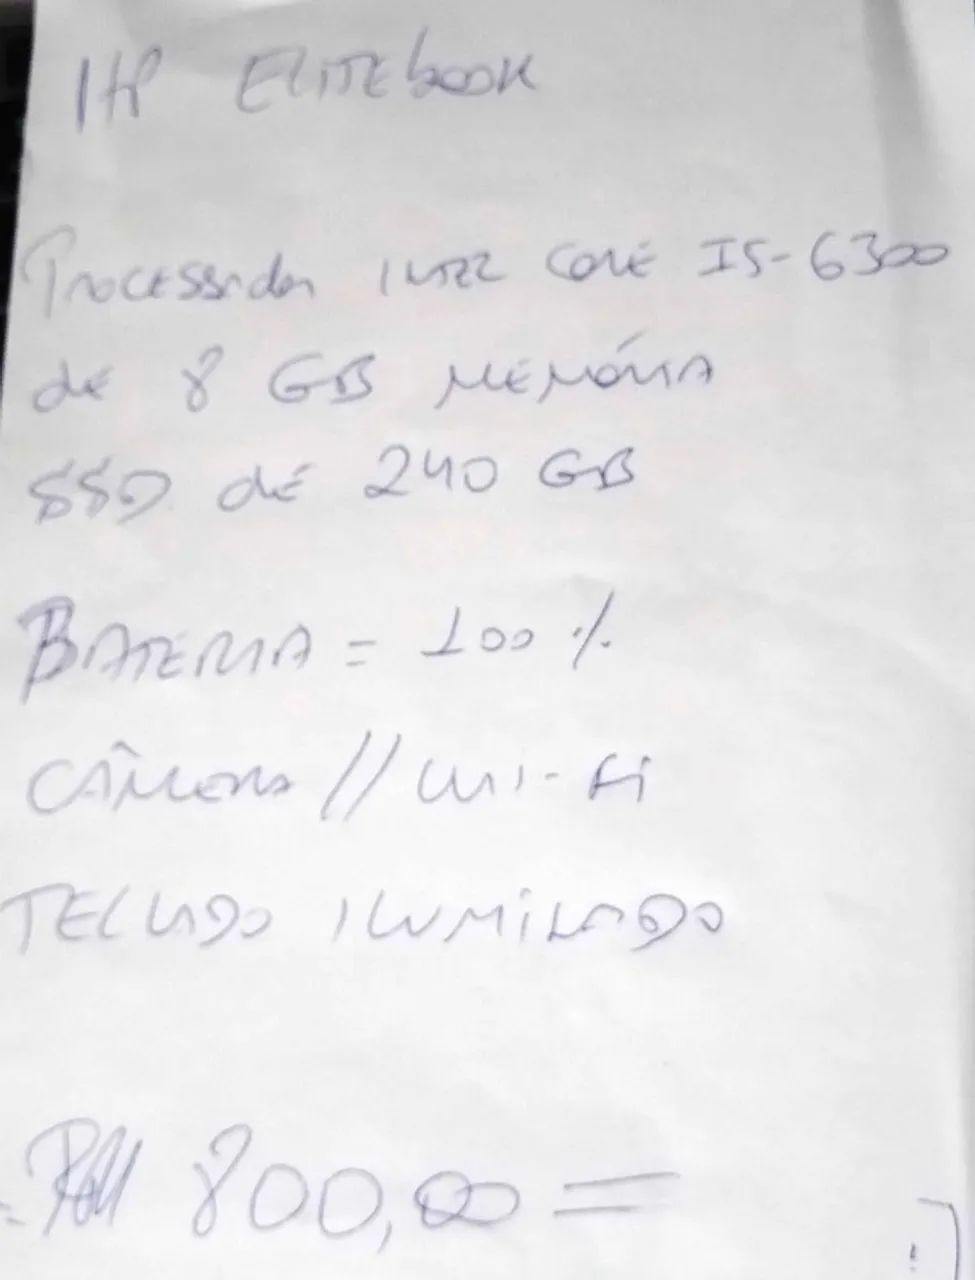 HP ELITEbook
Processador INTEL CORE I5-6300
de 8 GB MEMÓRIA
SSD dE 240 GB
BATERIA = 100 %
CÂMERA // WI-Fi
TECLADO ILUMINADO
800,00 =